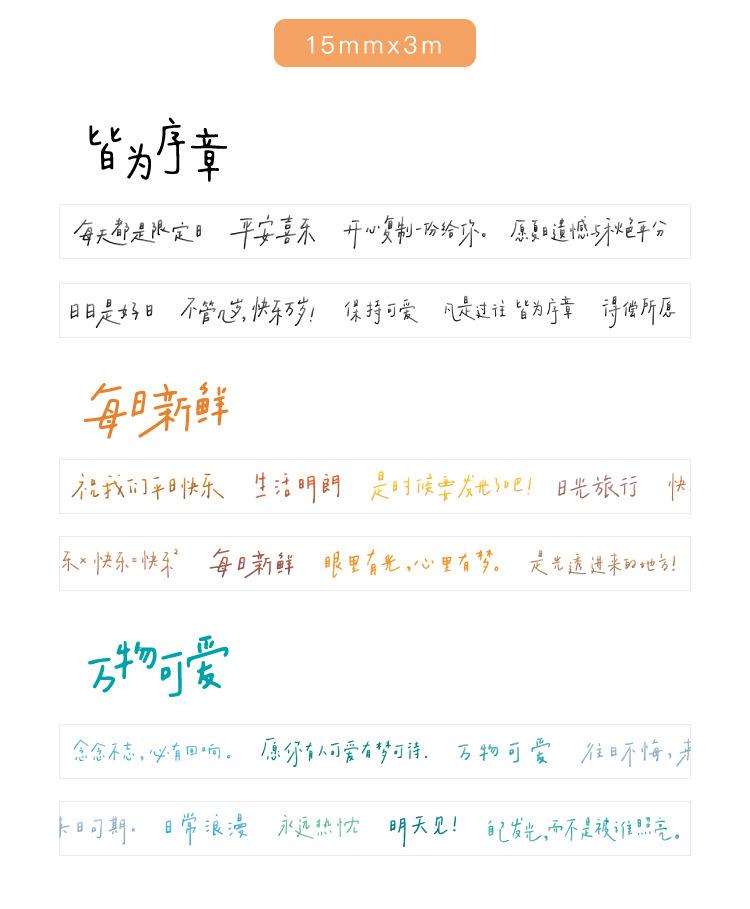 15mmx3m
皆为序章
每天都是限定日 平安喜乐 开心复制一份给你。 愿夏日遗憾与秋色平分
日日是好日 不管几岁,快乐万岁! 保持可爱 凡是过往 皆为序章 得偿所愿
每日新鲜
祝我们平日快乐 生活明朗 是时候要发光了吧! 日光旅行 快
乐×快乐=快乐² 每日新鲜 眼里有光,心里有梦。 是光透进来的地方!
万物可爱
念念不忘,必有回响。 愿你有人可爱有梦可待. 万物可爱 往日不悔,来
来日可期. 日常浪漫 永远热忱 明天见! 自己发光,而不是被谁照亮。